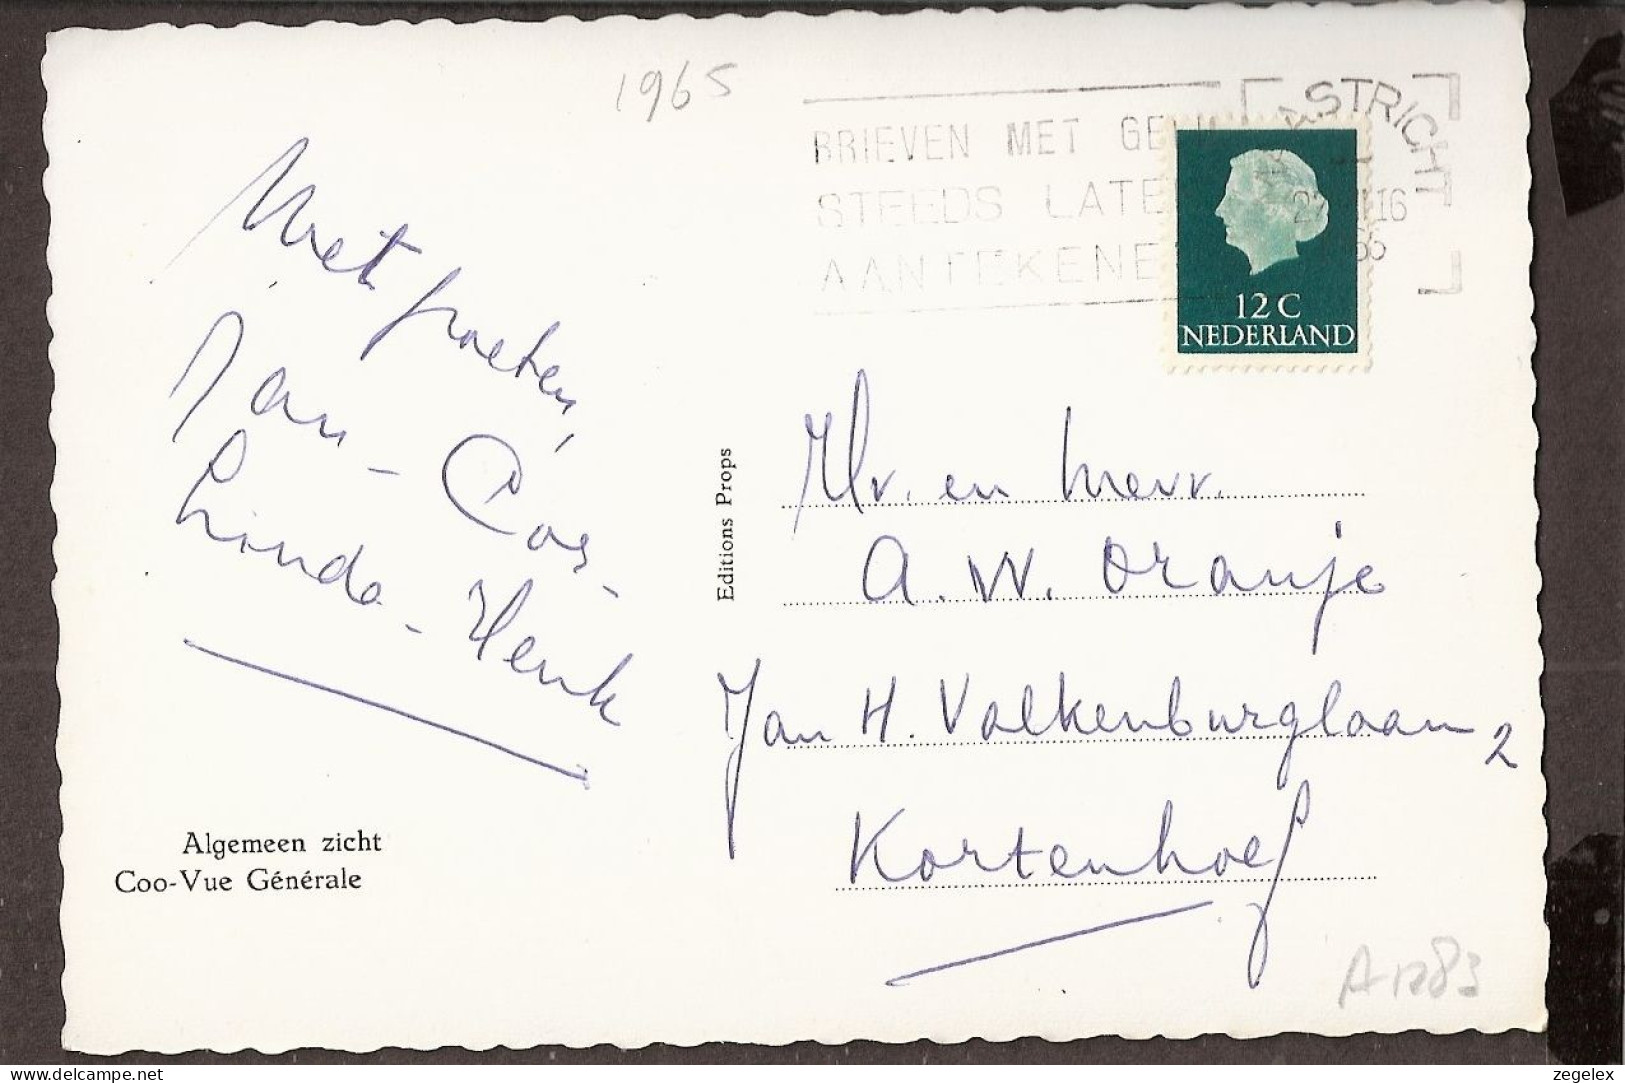 1965
BRIEVEN MET GELD
STEEDS LATE
AANTEKENE
STRICHT
16
65
12 C
NEDERLAND
Met groeten,
Jan - Cos -
Linda - Henk
Editions Props
Hr. en Mevr.
A. W. Oranje
Jan H. Valkenburglaan 2
Kortenhoef
Algemeen zicht
Coo-Vue Générale
A1283
www.delcampe.net
zegelex